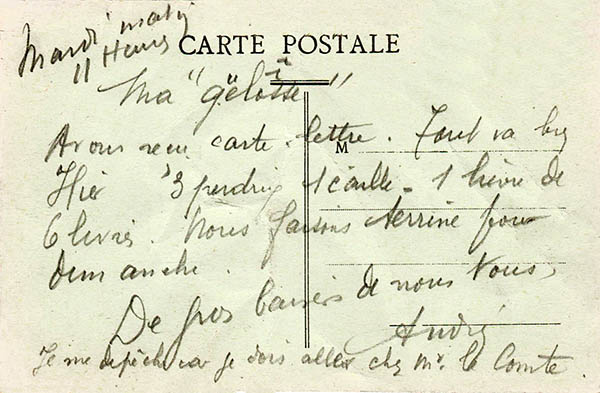 Mardi matin
11 Heures
CARTE POSTALE
Ma "gëlosse"
Avons recu carte-lettre. Tout va bien
M
Hier 3 perdrix 1 caille - 1 lièvre de
6 livres. Nous faisons terrine pour
dimanche.
De gros baisers de nous tous,
André
Je me dépêche car je dois aller chez Mr. le Comte.